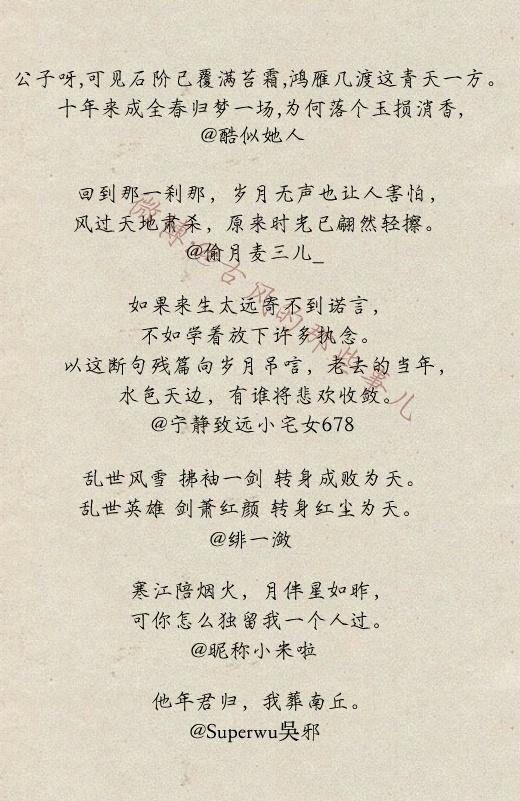 公子呀,可见石阶已覆满苔霜,鸿雁几渡这青天一方。
十年来成全春归梦一场,为何落个玉损消香,
@酷似她人
回到那一刹那，岁月无声也让人害怕，
风过天地肃杀，原来时光已翩然轻擦。
@偷月麦三儿_
如果来生太远寄不到诺言，
不如学着放下许多执念。
以这断句残篇向岁月吊唁，老去的当年，
水色天边，有谁将悲欢收敛。
@宁静致远小宅女678
乱世风雪 拂袖一剑 转身成败为天。
乱世英雄 剑萧红颜 转身红尘为天。
@绯一潋
寒江陪烟火，月伴星如昨，
可你怎么独留我一个人过。
@昵称小米啦
他年君归，我葬南丘。
@Superwu吳邪